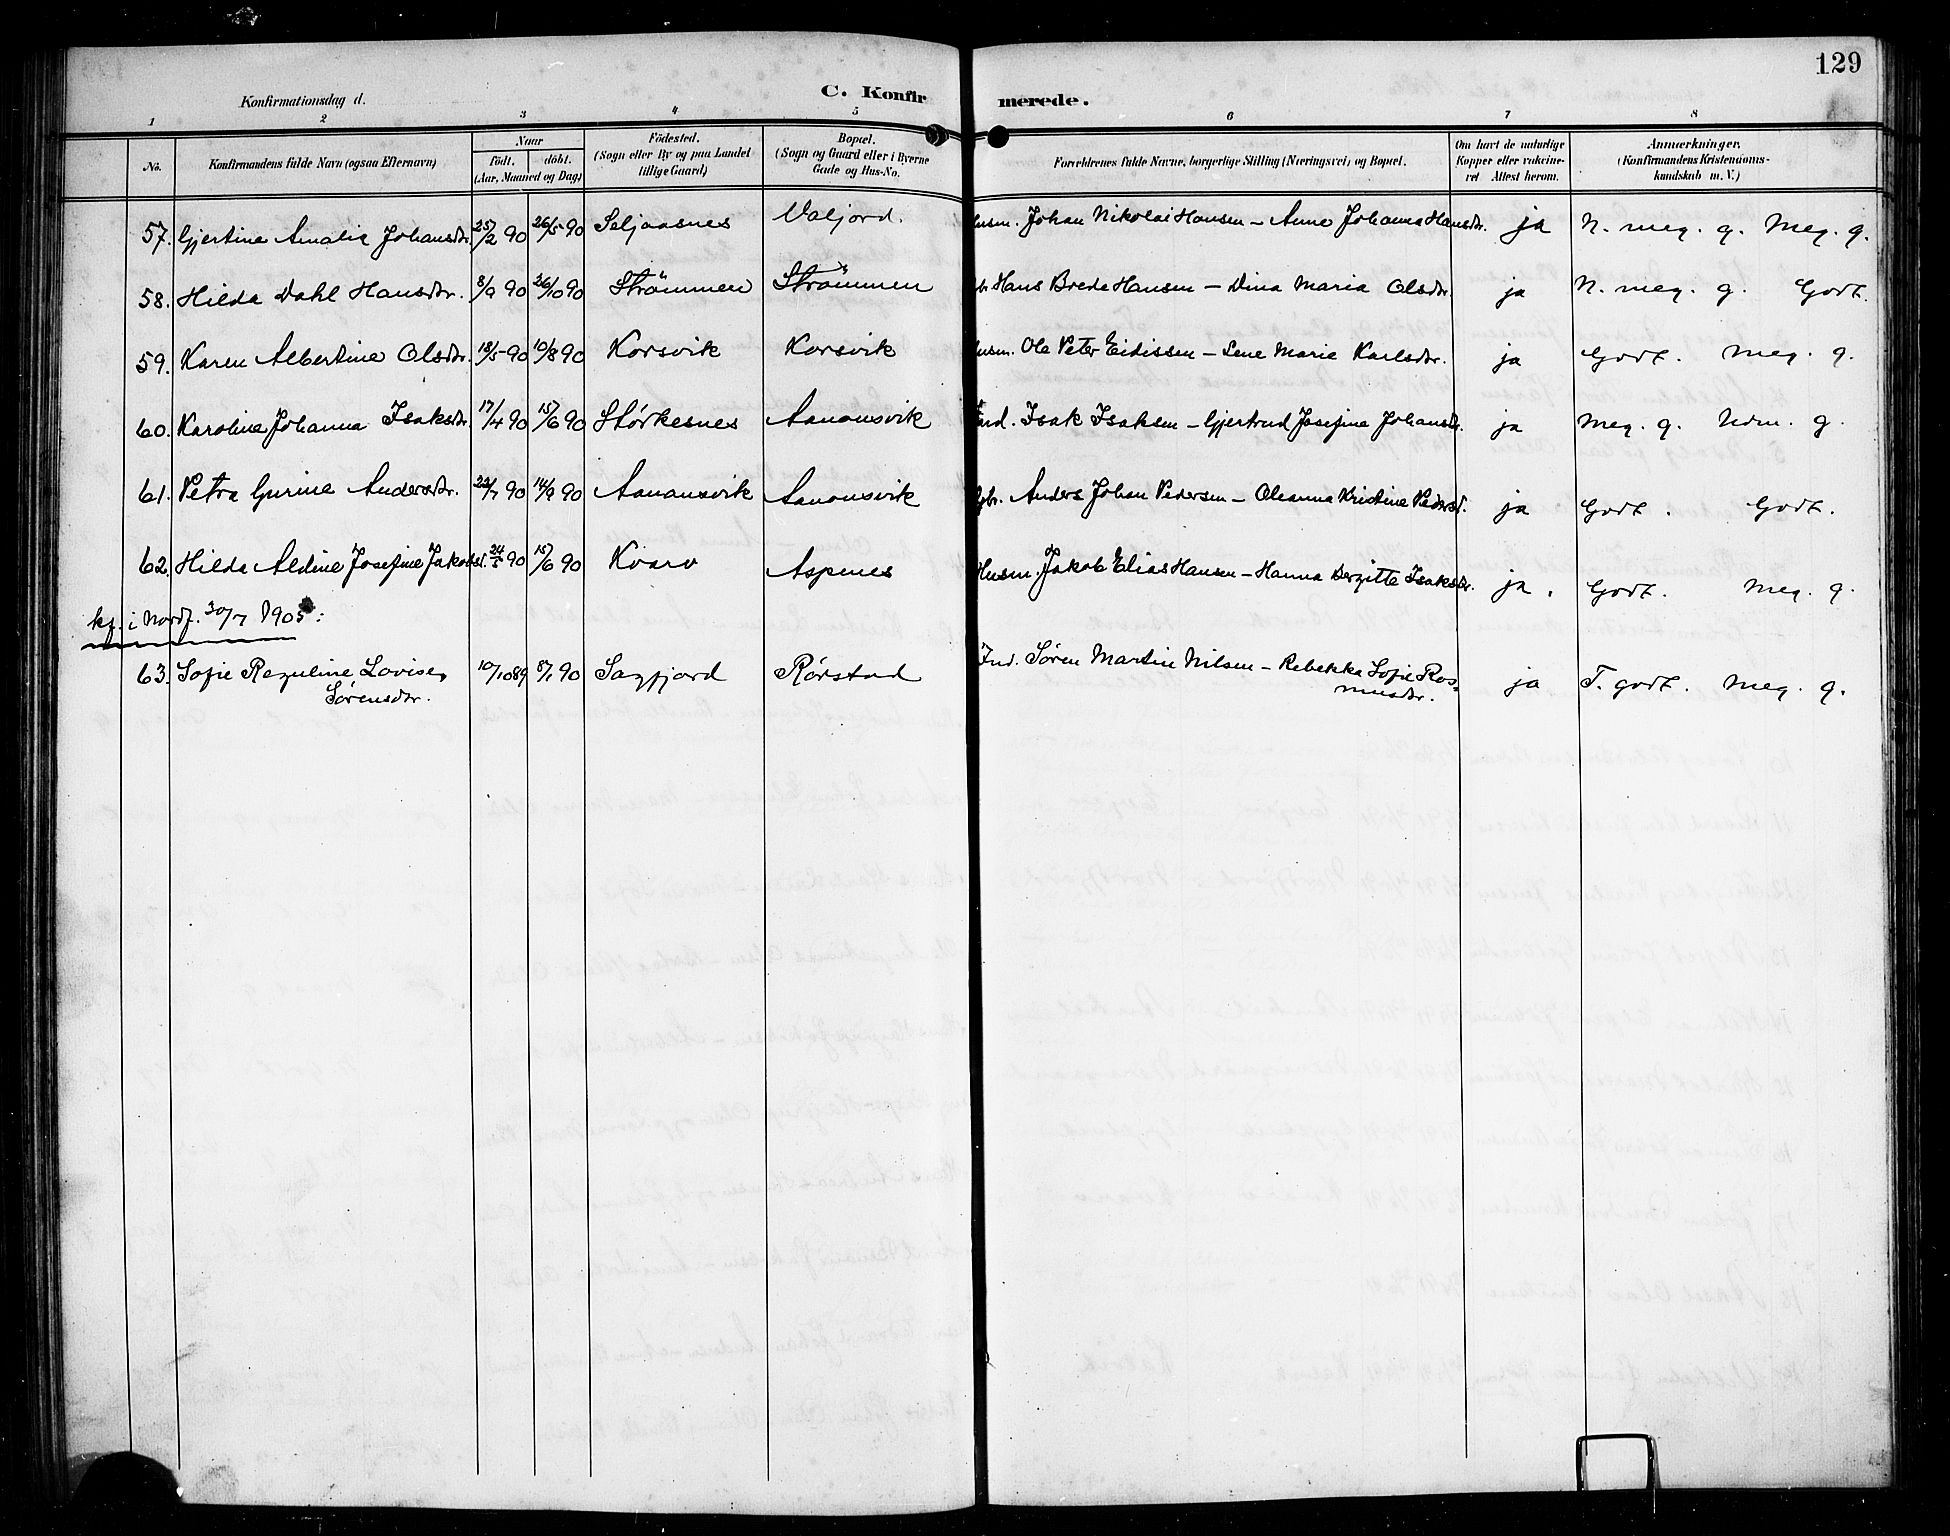 129
Konfirmationsdag d.
C. Konfirmerede.
1 2 3 4 5 6 7 8
No. Konfirmandens fulde Navn (ogsaa Efternavn) Naar født. døbt. (Aar, Maaned og Dag) Fødested. (Sogn eller By og paa Landet tillige Gaard) Bopæl. (Sogn og Gaard eller i Byerne Gade og Hus-No. Forældrenes fulde Navne, borgerlige Stilling (Næringsvei) og Bopæl. Om havt de naturlige Kopper eller vaccineret Attest herom. Anmærkninger. (Konfirmandens Kristendomskundskab m. V.)
57. Gjertine Amalie Johansdr. 25/2 90 26/5 90 Seljaasnes Valjord. Husm. Johan Nikolai Hansen – Anne Johanna Hansdr. ja N. meg. g. Meg. g.
58. Hilda Dahl Hansdr. 8/9 90 26/10 90 Strömmen Strömmen Hans Brede Hansen – Dina Maria Olsdr. ja N. meg. g. Godt.
59. Karen Albertine Olsdr. 18/5 90 10/8 90 Korsvik Korsvik Husm. Ole Peter Eidissen – Lene Marie Karlsdr. ja Godt. Meg. g.
60. Karoline Johanna Isaksdr. 17/4 90 15/6 90 Størkesnes Aanonsvik Ind. Isak Isaksen – Gjertrud Josefine Johansdr. ja Meg. g. Udm. g.
61. Petra Gurine Andersdr. 22/7 90 14/9 90 Aanonsvik Aanonsvik Gbr. Anders Johan Pedersen – Oleanna Kristine Pedersd. ja Godt. Godt.
62. Hilda Aldine Josefine Jakobsd. 24/5 90 15/6 90 Kvarv Aspenes Husm. Jakob Elias Hansen – Hanna Bergitte Isaksdr. ja. Godt. Meg. g.
kf. i Nordf. 30/7 1905:
63. Sofie Reguline Lovise Sørensdr. 10/10 89 8/1 90 Sagfjord Rørstad Ind. Søren Martin Nilsen – Rebekka Sofie Rasmusdr. ja T. godt. Meg. g.